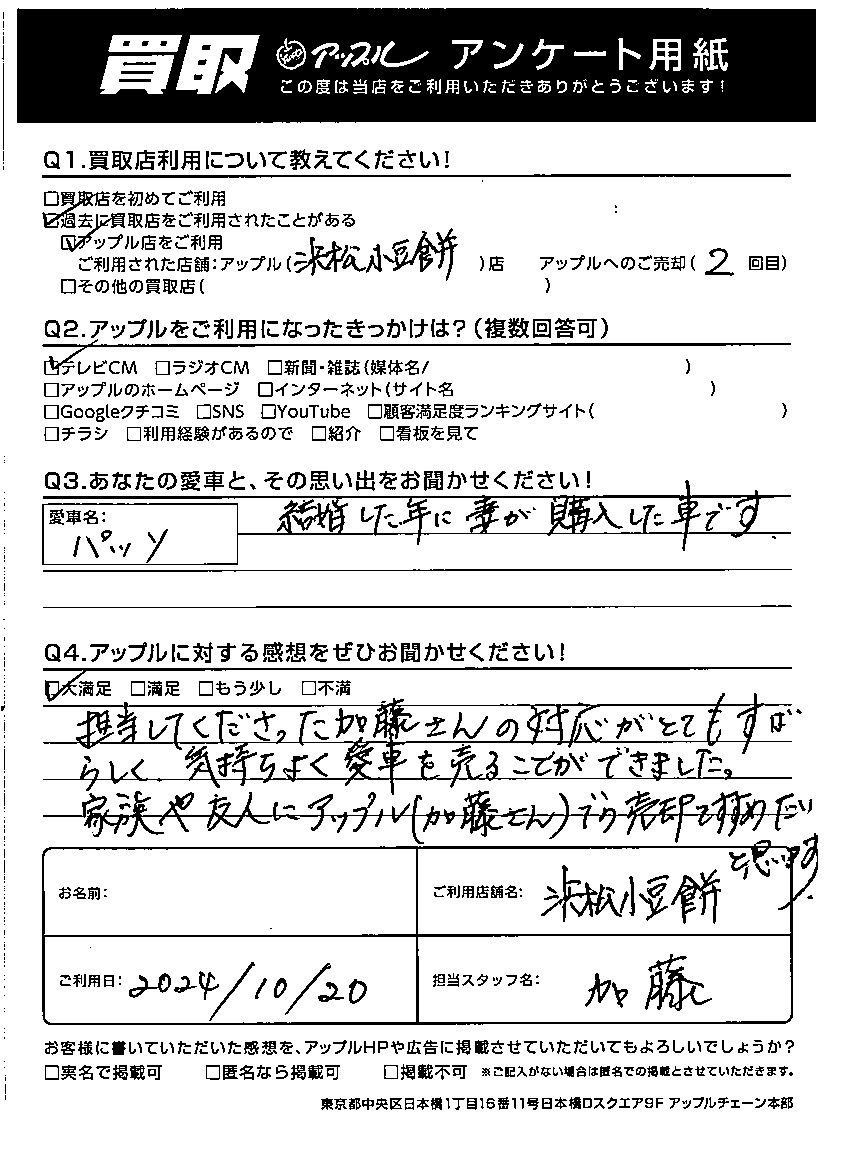 買取 アップル アンケート用紙
この度は当店をご利用いただきありがとうございます!
Q1.買取店利用について教えてください!
□買取店を初めてご利用
☑過去に買取店をご利用されたことがある
☑アップル店をご利用
ご利用された店舗:アップル(浜松小豆餅)店 アップルへのご売却(2回目)
□その他の買取店( )
Q2.アップルをご利用になったきっかけは?(複数回答可)
☑テレビCM □ラジオCM □新聞・雑誌(媒体名/ )
□アップルのホームページ □インターネット(サイト名 )
□Googleクチコミ □SNS □YouTube □顧客満足度ランキングサイト( )
□チラシ □利用経験があるので □紹介 □看板を見て
Q3.あなたの愛車と、その思い出をお聞かせください!
愛車名:
パッソ
結婚した年に妻が購入した車です.
Q4.アップルに対する感想をぜひお聞かせください!
☑大満足 □満足 □もう少し □不満
担当してくださった加藤さんの対応がとてもすば
らしく、気持ちよく愛車を売ることができました。
家族や友人にアップル(加藤さん)での売却をすすめたい
と思います.
お名前:
ご利用店舗名: 浜松小豆餅
ご利用日: 2024/10/20
担当スタッフ名: 加藤
お客様に書いていただいた感想を、アップルHPや広告に掲載させていただいてもよろしいでしょうか?
□実名で掲載可 □匿名なら掲載可 □掲載不可 ※ご記入がない場合は匿名での掲載とさせていただきます。
東京都中央区日本橋1丁目16番11号日本橋Dスクエア9F アップルチェーン本部